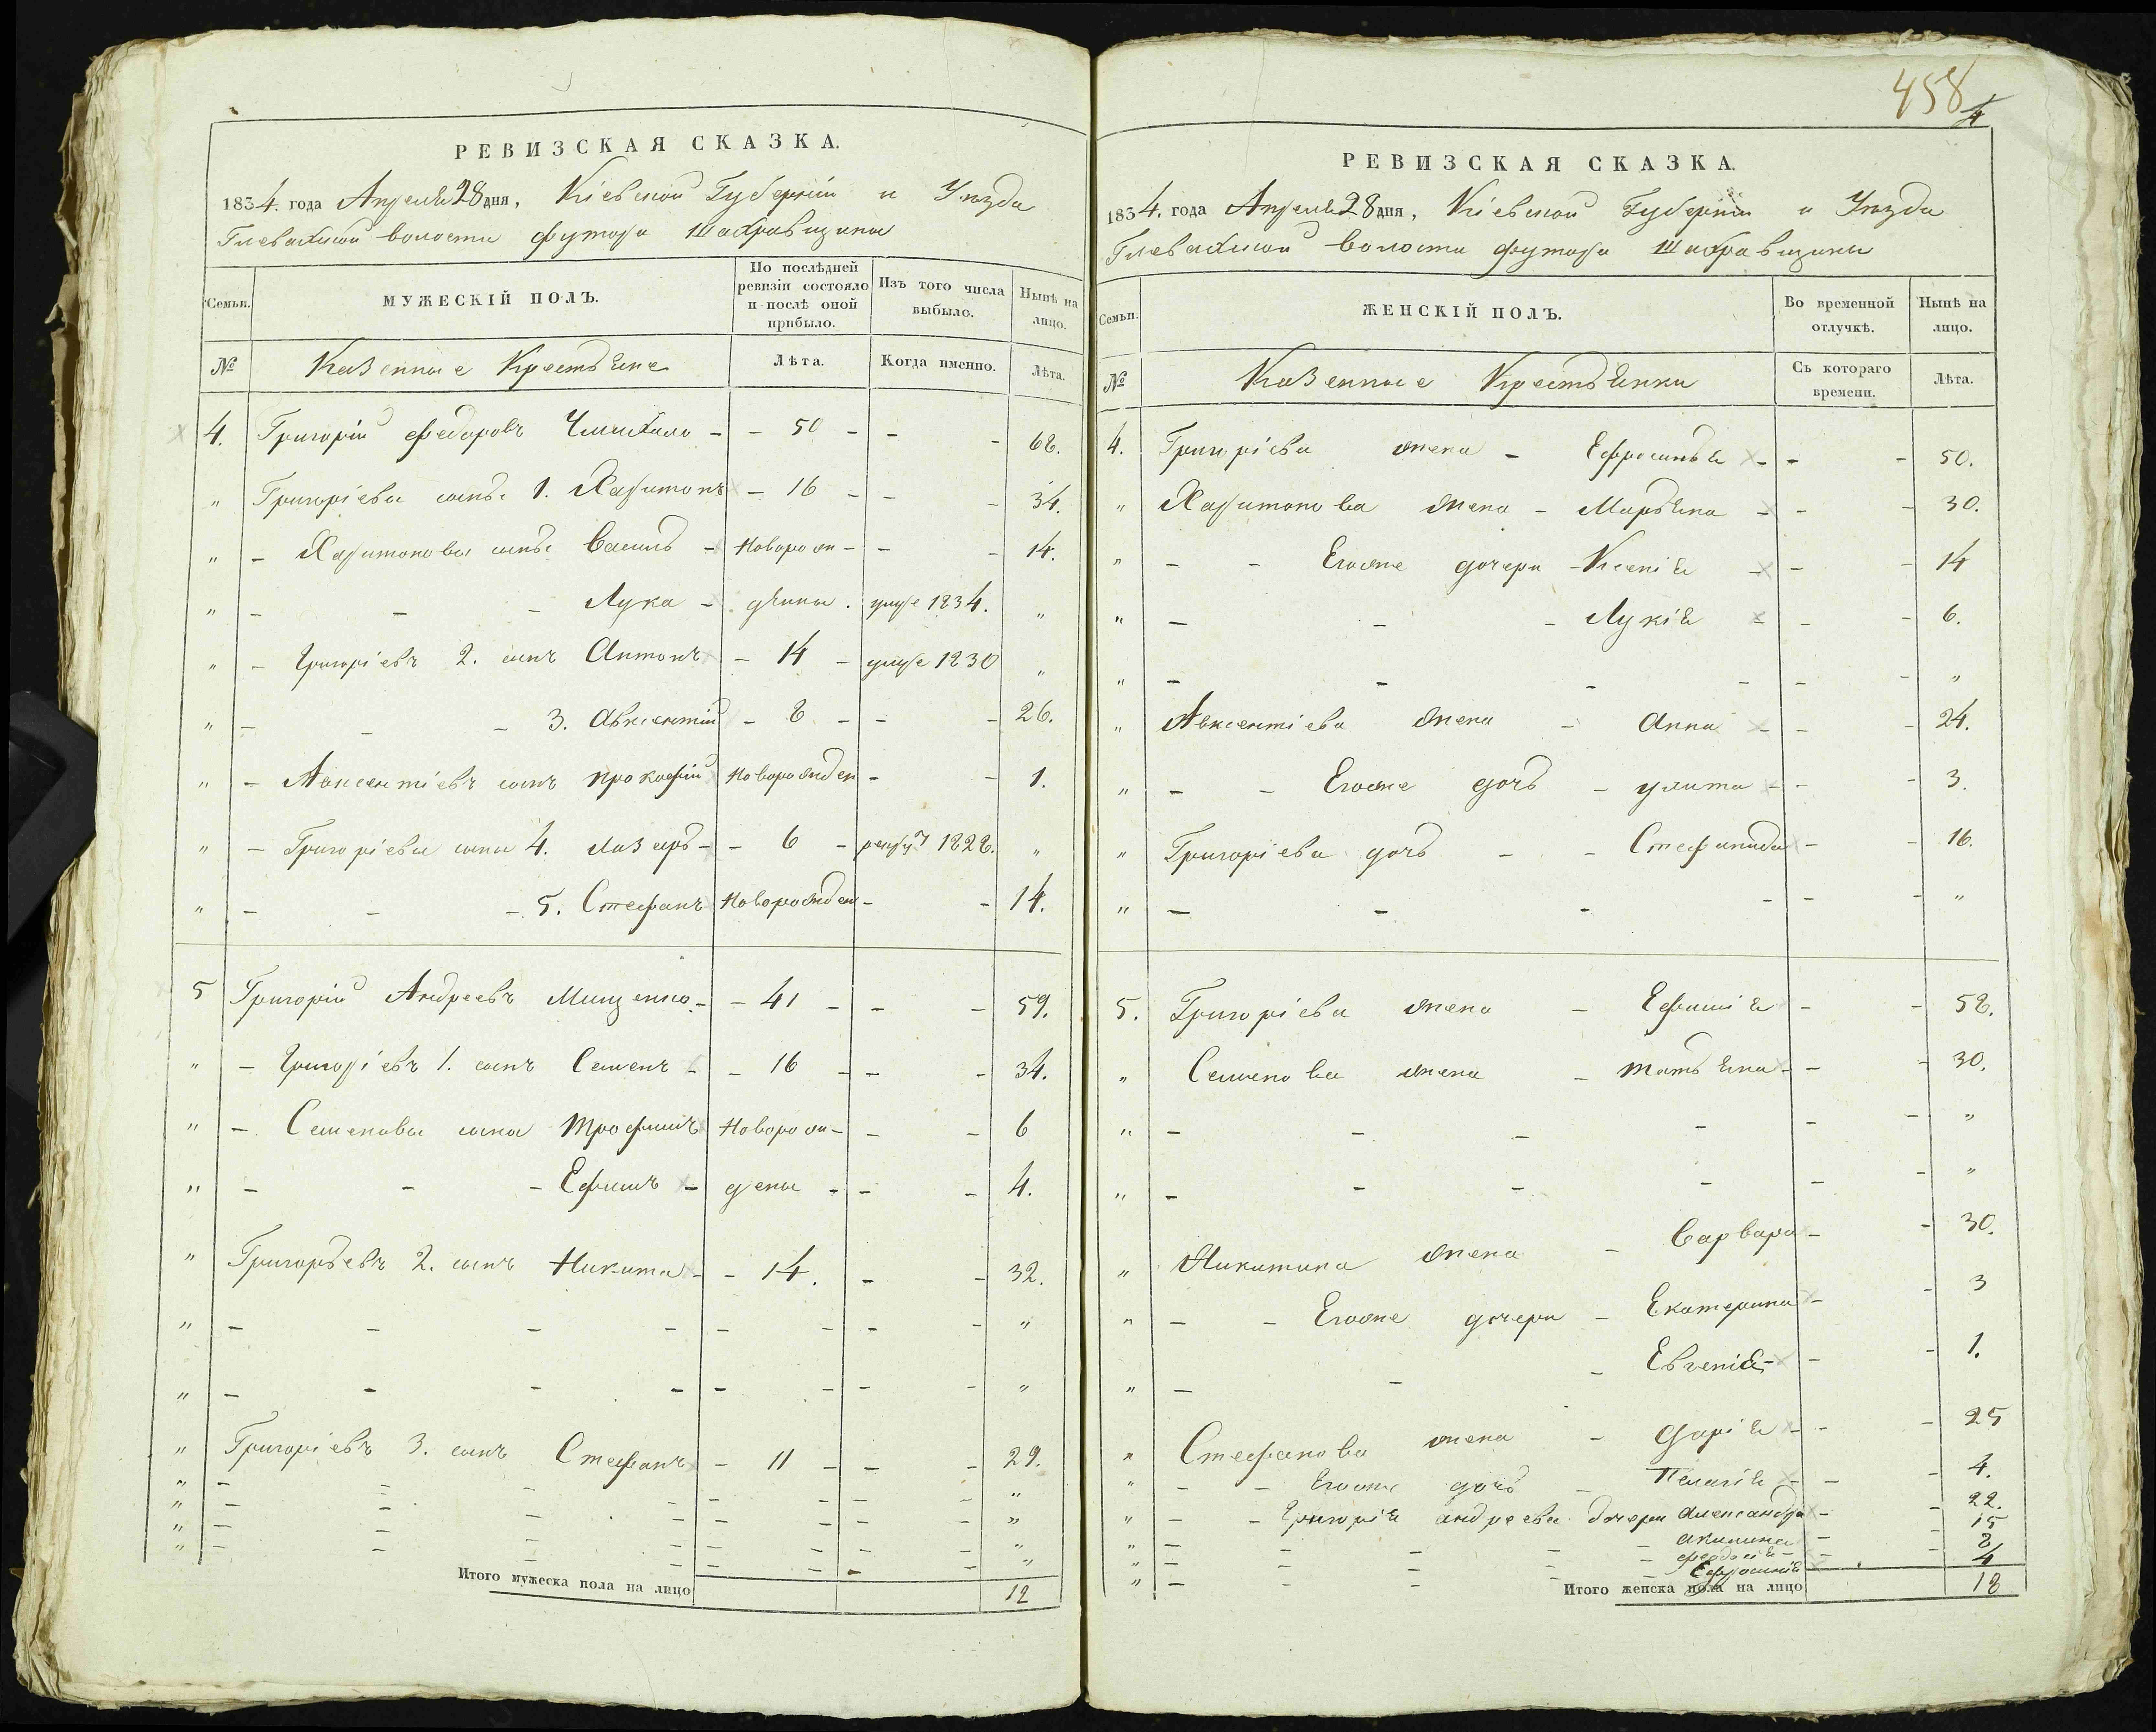 РЕВИЗСКАЯ СКАЗКА.
1834. года Апреля 28 дня, Кіевской Губерніи и Уѣзда
волости хутора
Семьи. МУЖЕСКІЙ ПОЛЪ. По послѣдней ревизіи состояло и послѣ оной прибыло. Изъ того числа выбыло. Нынѣ на лицо.
№ Казенные Крестьяне Лѣта. Когда именно. Лѣта.
4. Григорій Федоровъ - - 50 - - - 68.
" Григоріевы сынъ 1. Харитонъ - 16 - - - 34.
" - Харитоновы сынъ Василь - Новорож - - - 14.
" - - - Лука - дены. умре 1834. "
" - Григоріевъ 2. сынъ Антонъ - 14 - умре 1830 "
" - - - 3. Авксентій - 8 - - - 26.
" - Авксентіевъ сынъ Прокофій Новорожден - - 1.
" - Григоріевы сыны 4. Лазарь - - 6 - рекрут 1828. "
" - - - 5. Стефанъ Новорожден - - 14.
5 Григорій Андреевъ Мищенко - - 41 - - - 59.
" - Григоріевъ 1. сынъ Семенъ - - 16 - - - 34.
" - Семеновы сыны Трофимъ Новорож - - - 6
" - - - Ефимъ - дены - - - 4.
" Григорьевъ 2. сынъ Никита - - 14. - - 32.
" - - - - - - - - "
" - - - - - - - - "
" Григоріевъ 3. сынъ Стефанъ - 11 - - - 29.
" - - - - - - - - "
" - - - - - - - - "
" - - - - - - - - "
" - - - - - - - - "
Итого мужеска пола на лицо 12
458
4
РЕВИЗСКАЯ СКАЗКА.
1834. года Апреля 28 дня, Кіевской Губерніи и Уѣзда
волости хутора
Семьи. ЖЕНСКІЙ ПОЛЪ. Во временной отлучкѣ. Нынѣ на лицо.
№ Казенные Крестьянки Съ котораго времени. Лѣта.
4. Григоріева жена - Ефросинья - - - 50.
" Харитонова жена - Марьяна - - - 30.
" - - Егоже дочери - Ксенія - - - 14
" - - - Лукія - - - 6.
" - - - - - - "
" Авксентіева жена - Анна - - - 24.
" - - Егоже дочь - Улита - - - 3.
" Григоріева дочь - - Степанида - - 16.
" - - - - - - "
5. Григоріева жена - Ефимія - - 58.
" Семенова жена - Татьяна - - - 30.
" - - - - - - "
" - - - - - - "
" Никитина жена - Варвара - - 30.
" - - Егоже дочери - Екатерина - - 3
" - - - Евгенія - - - 1.
" Стефанова жена - Дарія - - - 25
" - - Егоже дочь - Пелагія - - - 4.
" - - Григорія Андреева дочери Александра - - 22.
" - - - - - Акилина - - 15
" - - - - - Феодосія - - 8
" - - - - - Ефросинія 4
Итого женска пола на лицо 18